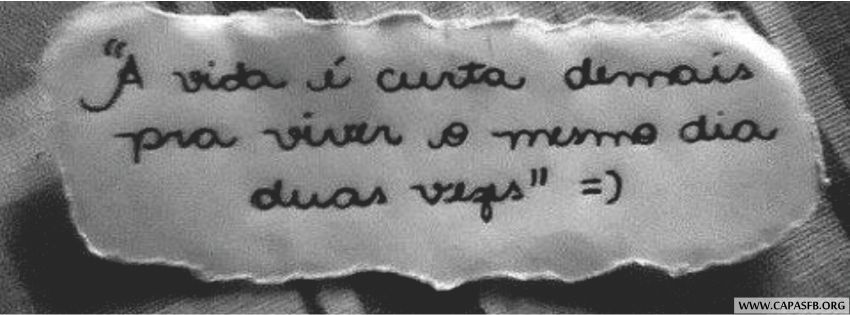 "A vida é curta demais
pra viver o mesmo dia
duas vezes" =)
WWW.CAPASFB.ORG